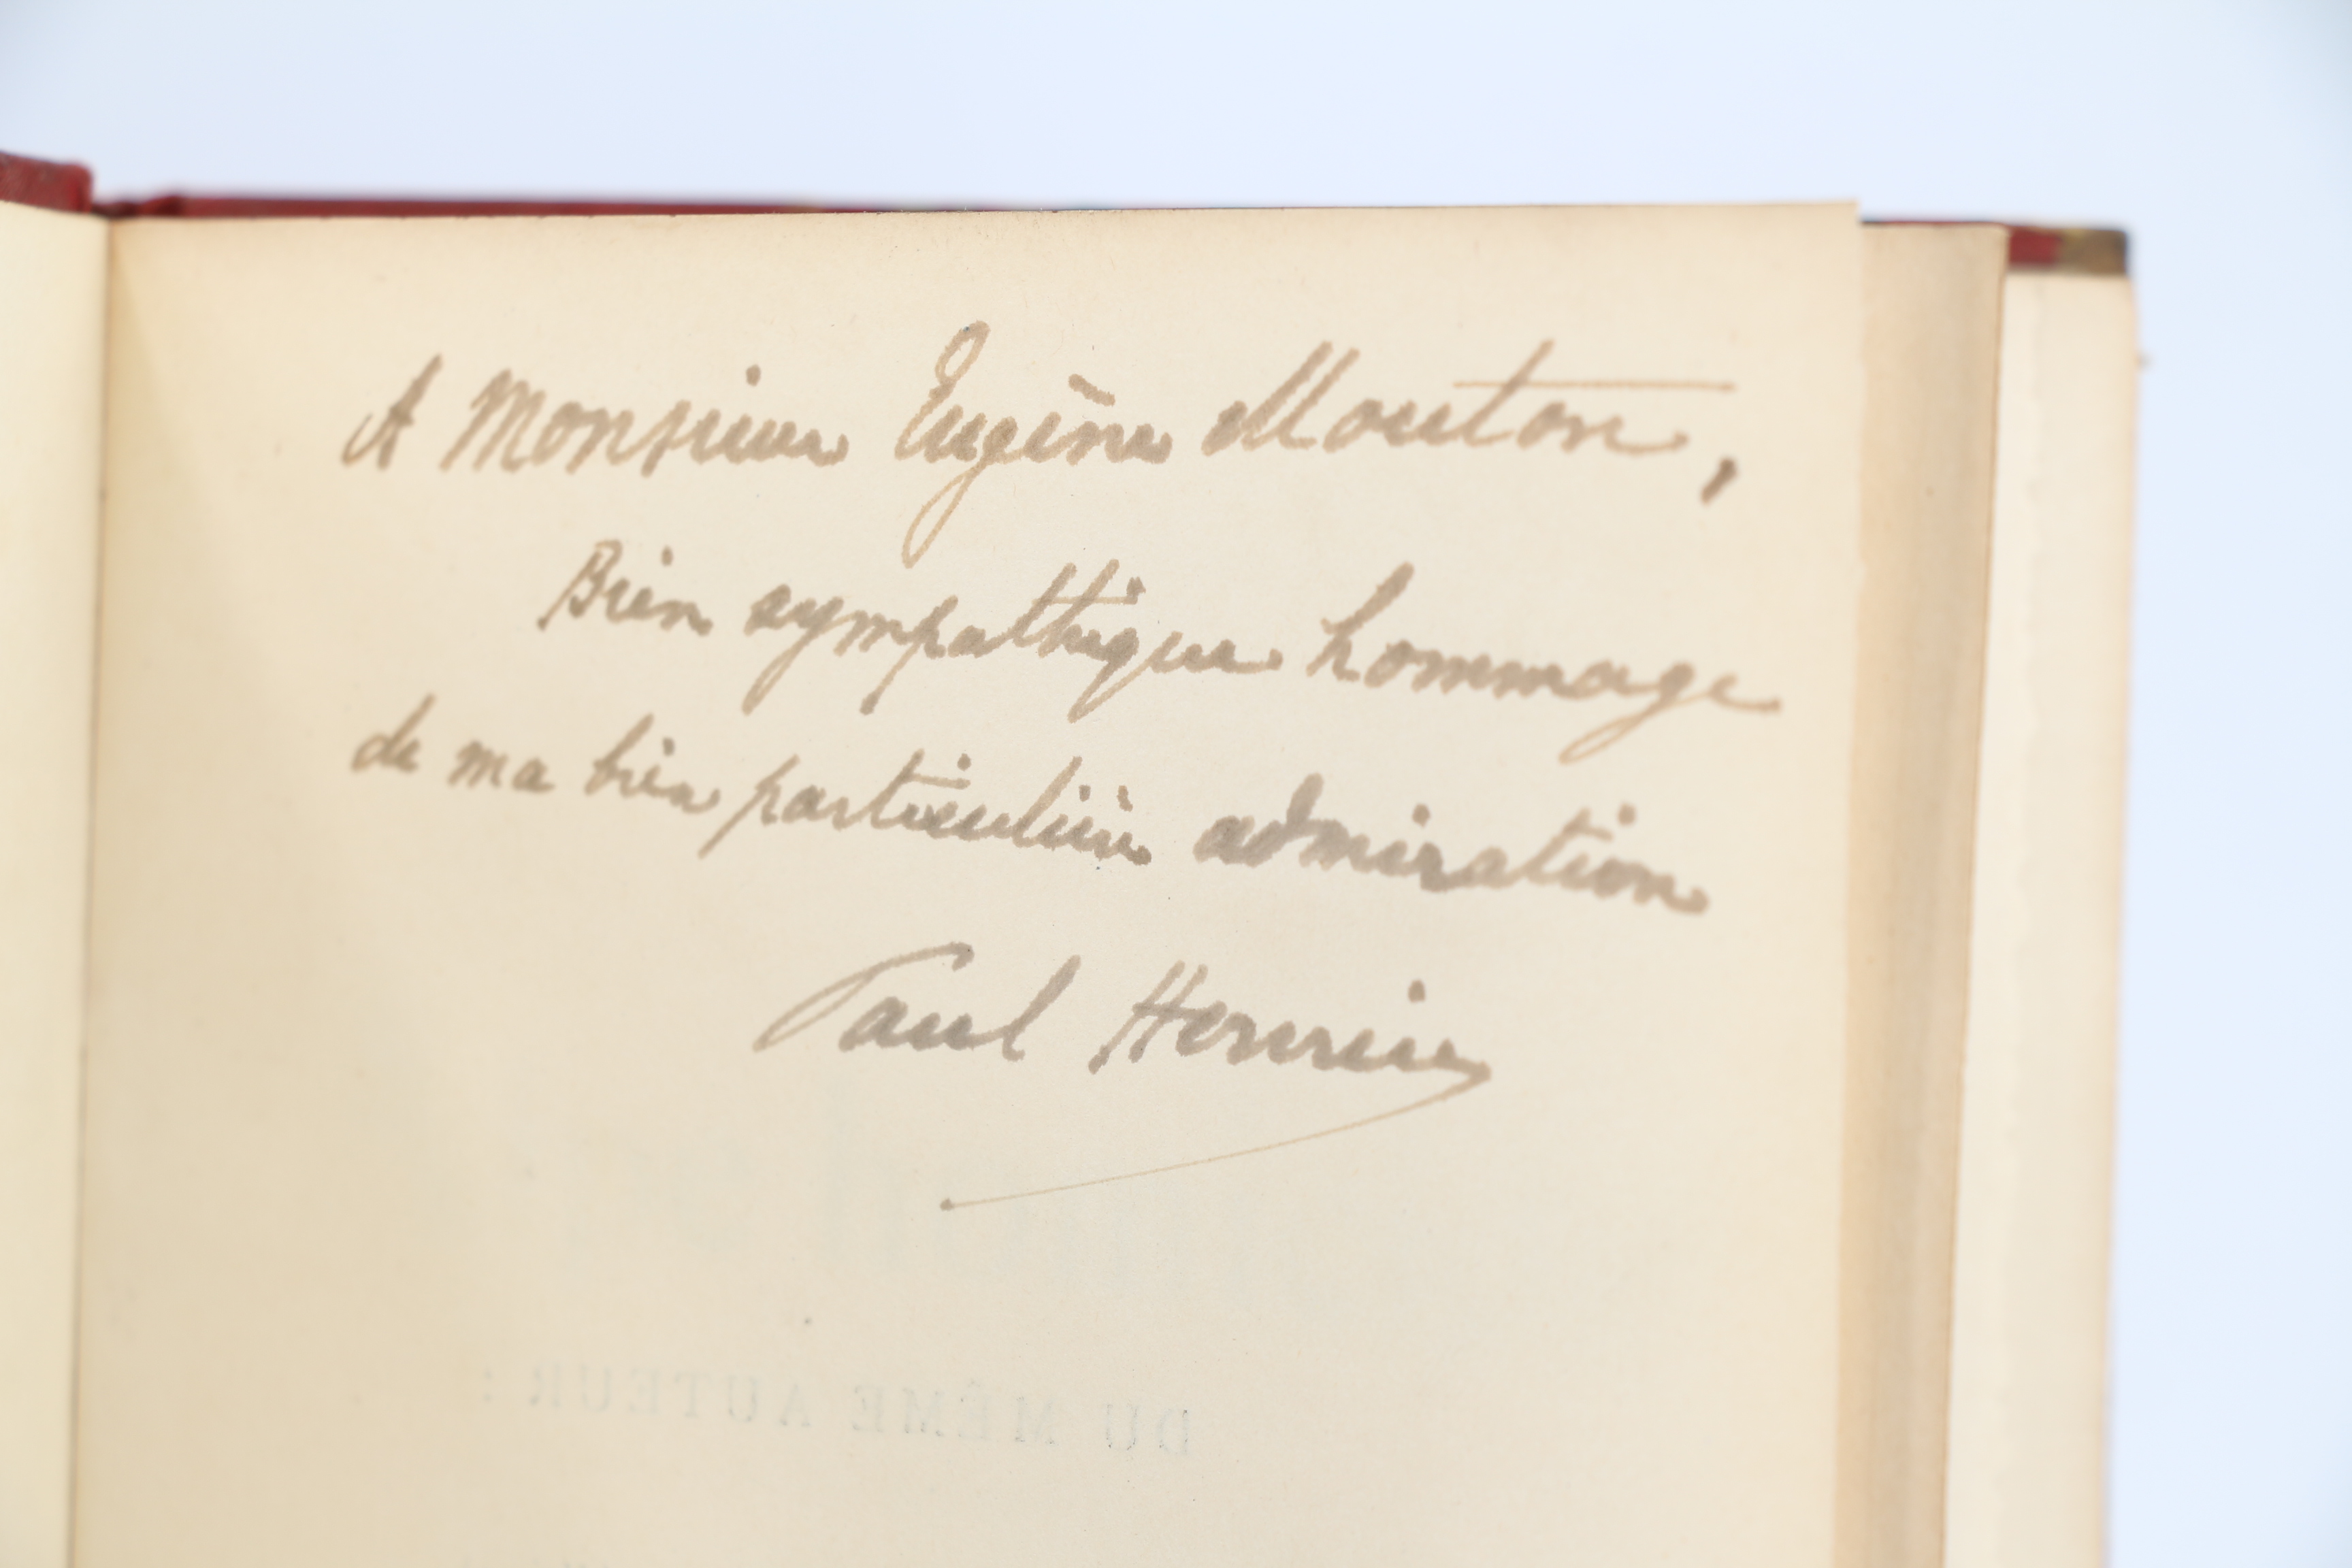 A Monsieur Eugène Mouton,
Bien sympathique hommage
de ma bien particulière admiration
Paul Hervieu
DU MÊME AUTEUR :